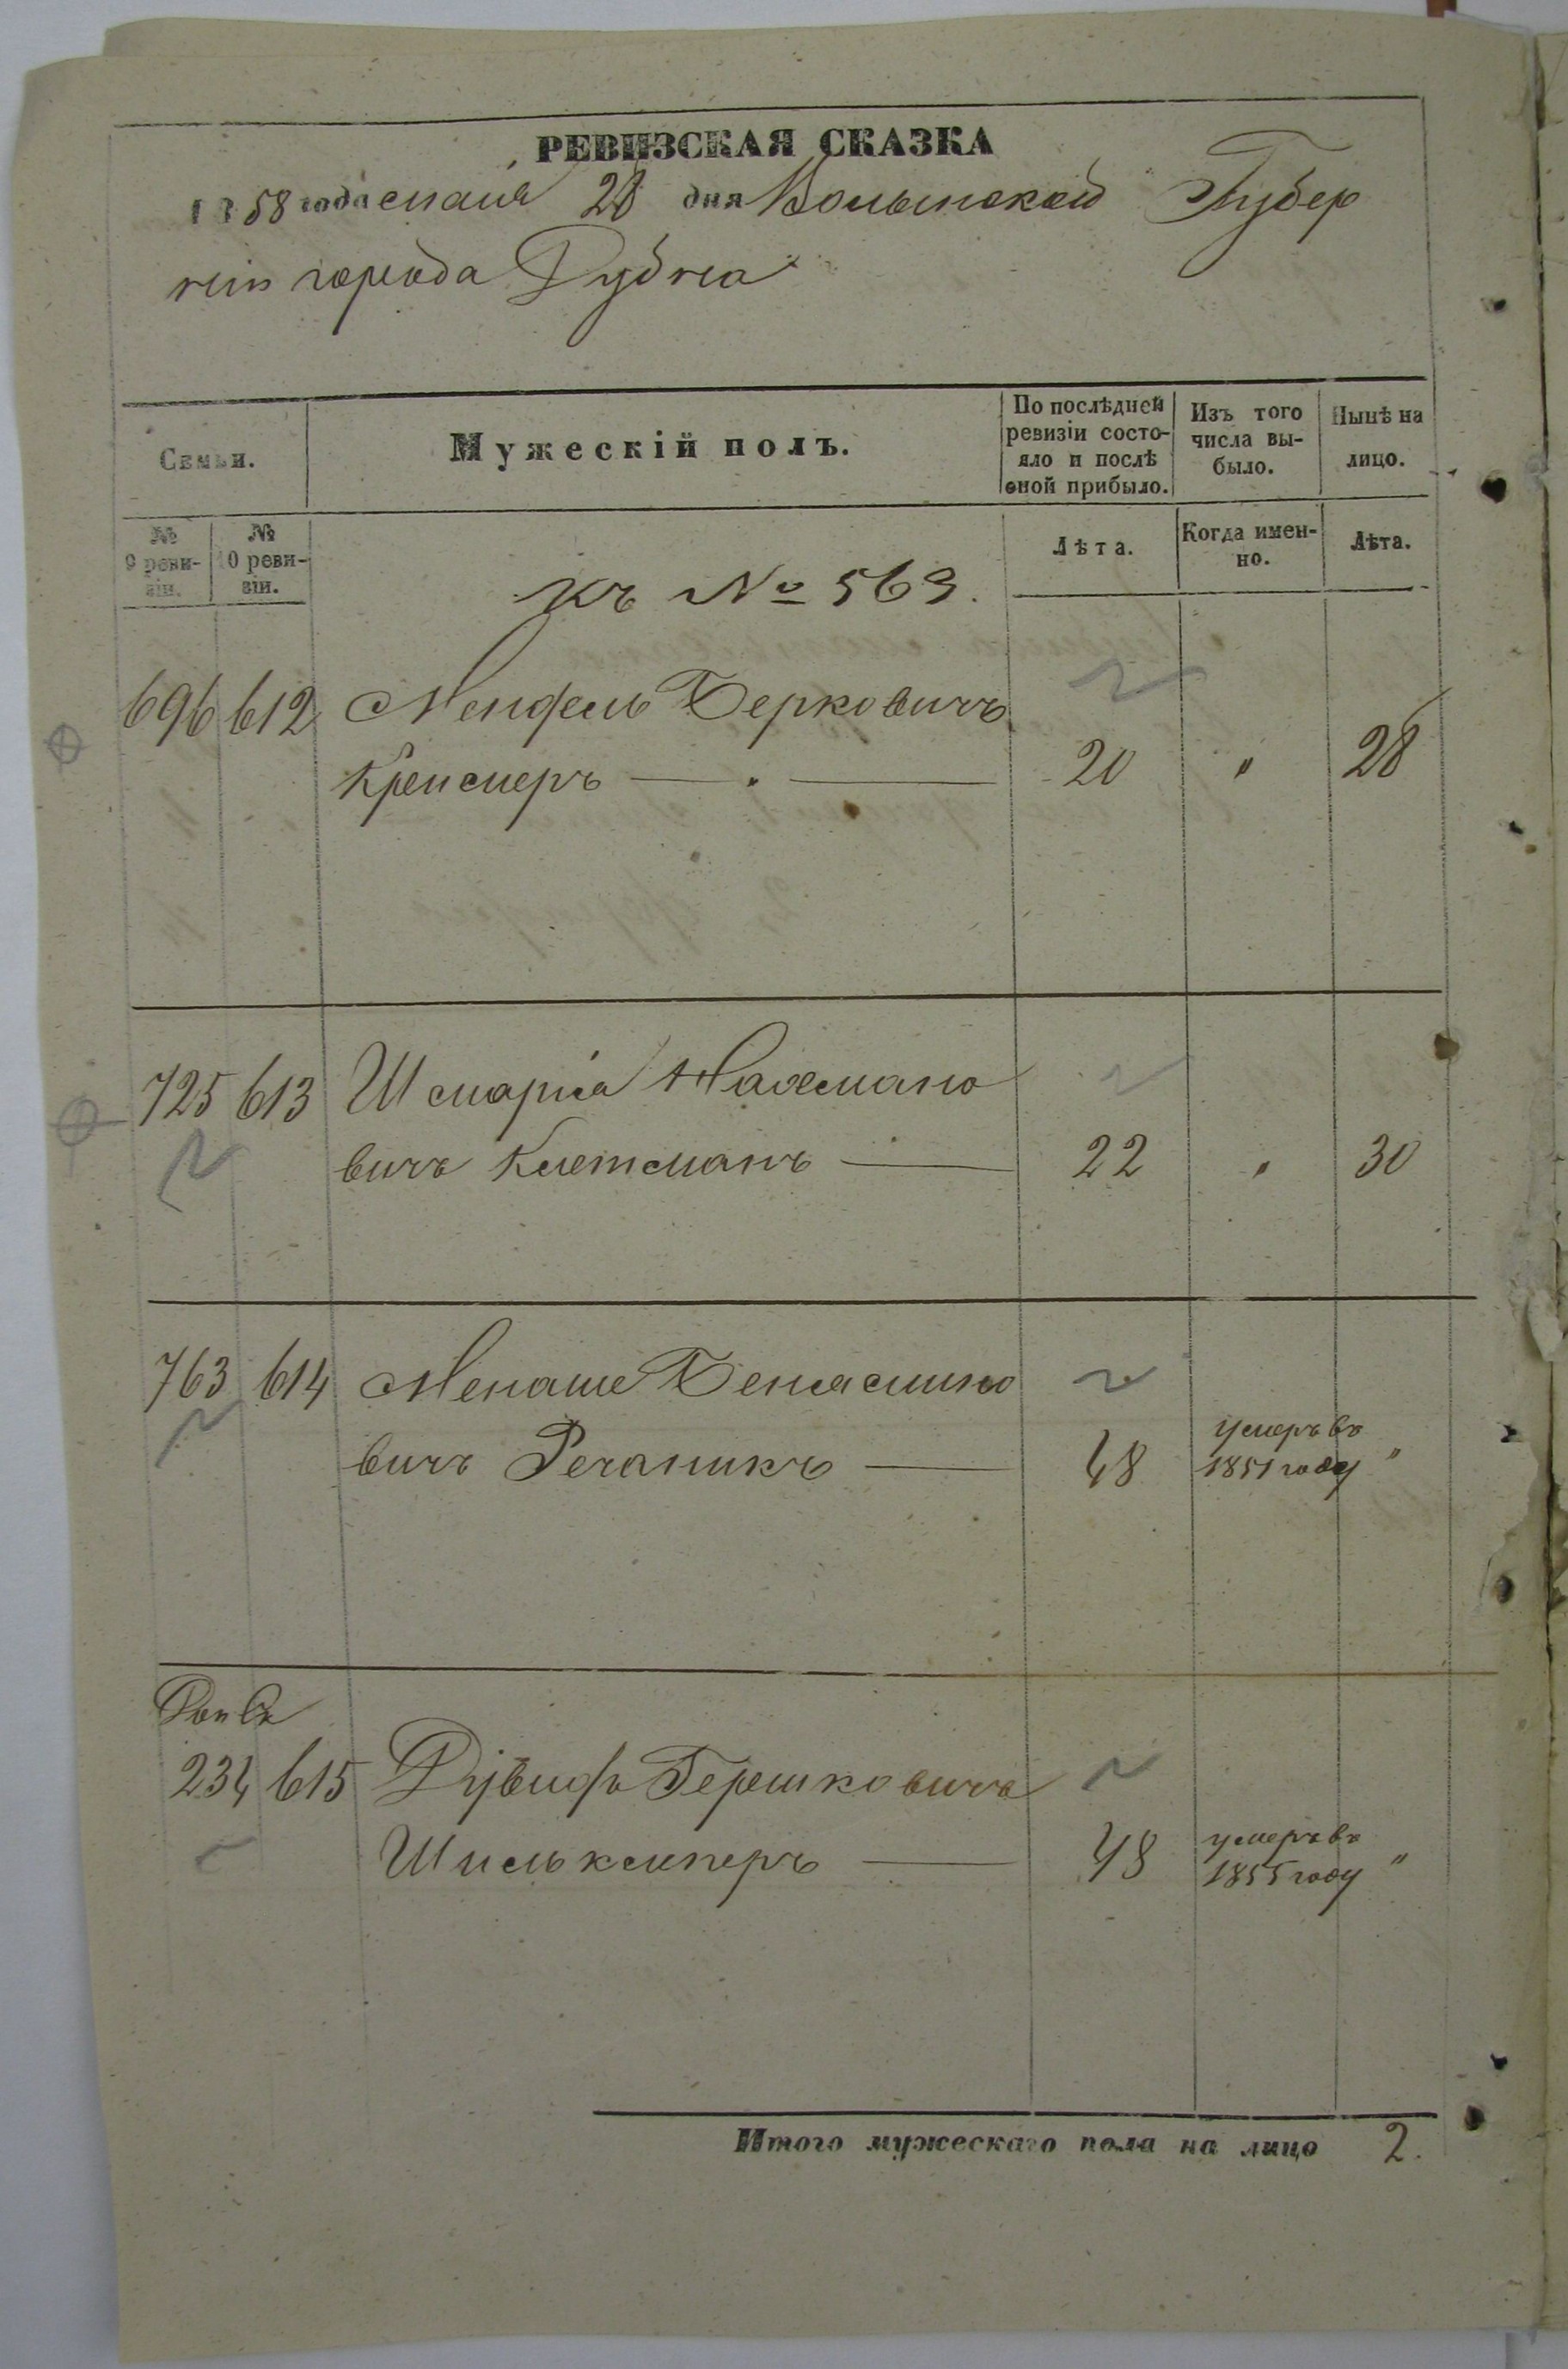 РЕВИЗСКАЯ СКАЗКА
1858 года мая 28 дня Волынской Губер
нiи города Дубна
Семьи.
Мужескій полъ.
По послѣдней ревизіи состо-
яло и послѣ
оной прибыло.
Изъ того
числа вы-
было.
Нынѣ на
лицо.
№
9 реви-
зіи.
№
10 реви-
зіи.
Лѣта.
Когда имен-
но.
Лѣта.
Къ № 563.
696 612 Мендель Берковичъ
Кремеръ — 20 " 28
725 613 Шмарiа Нахмано
вичъ Клетманъ — 22 " 30
763 614 Менаше Бенямино
вичъ Речаникъ — 48 умеръ въ
1851 году "
234 615 Дувидъ Гершковичъ
Шильклеперъ — 48 умеръ въ
1855 году "
Итого мужескаго пола на лицо 2.